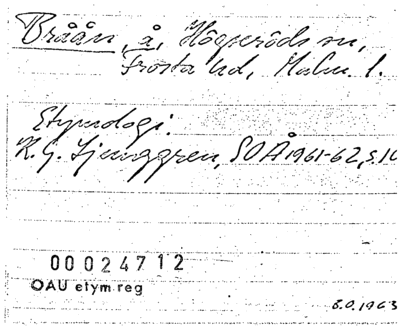 Bråån, å, Högseröds sn,
Frosta hd, Malm. l.
Etymologi.
K. G. Ljunggren, SOÅ 1961-62, s. 10
00024712
OAU etym reg
6.0.1963